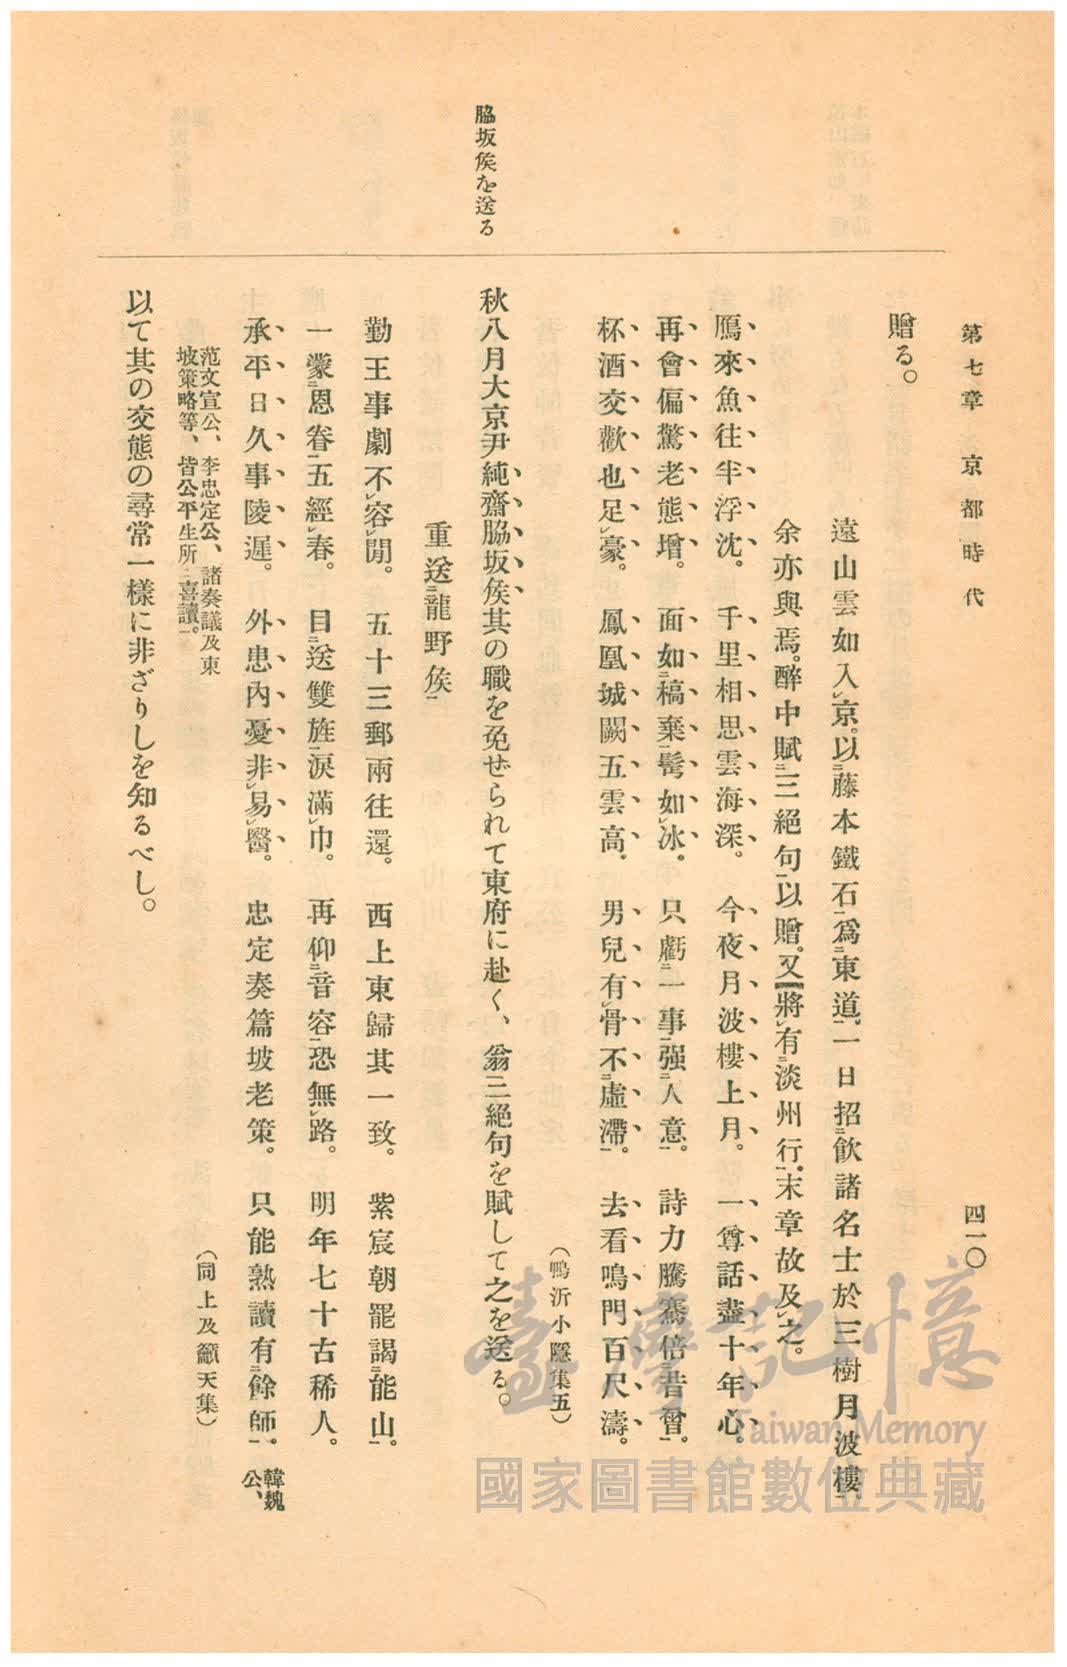 第七章 京都時代
四一〇
脇坂侯を送る
贈る。
遠山雲如入レ京。以二藤本鐵石一爲二東道一。一日招二飮諸名士於三樹月波樓一
余亦與焉。醉中賦二三絕句一以贈。又將レ有二淡州行一。末章故及レ之。
鴈來魚往半浮沈。千里相思雲海深。今夜月波樓上月。一尊話盡十年心。
再會偏驚老態增。面如二槁棄一髩如レ冰。只虧二一事一强二人意一。詩力騰騫倍二昔曾一。
杯酒交歡也足レ豪。鳳凰城闕五雲高。男兒有レ骨不二虛滯一。去看鳴門百尺濤。
(鴨沂小隱集五)
秋八月大京尹純齋脇坂侯其の職を免ぜられて東府に赴く、翁三絕句を賦して之を送る。
重送二龍野侯一
勤王事劇不レ容レ閒。五十三郵兩往還。西上東歸其一致。紫宸朝罷謁二能山一。
一蒙二恩眷一五經レ春。目二送雙旌一淚滿レ巾。再仰二音容一恐無レ路。明年七十古稀人。
承平日久事陵遲。外患內憂非レ易レ醫。忠定奏篇坡老策。只能熟讀有二餘師一。韓魏公、
范文宣公、李忠定公、諸奏議及東坡策略等、皆公平生所二喜讀一。
(同上及籲天集)
以て其の交態の尋常一樣に非ざりしを知るべし。
臺灣記憶
Taiwan Memory
國家圖書館數位典藏